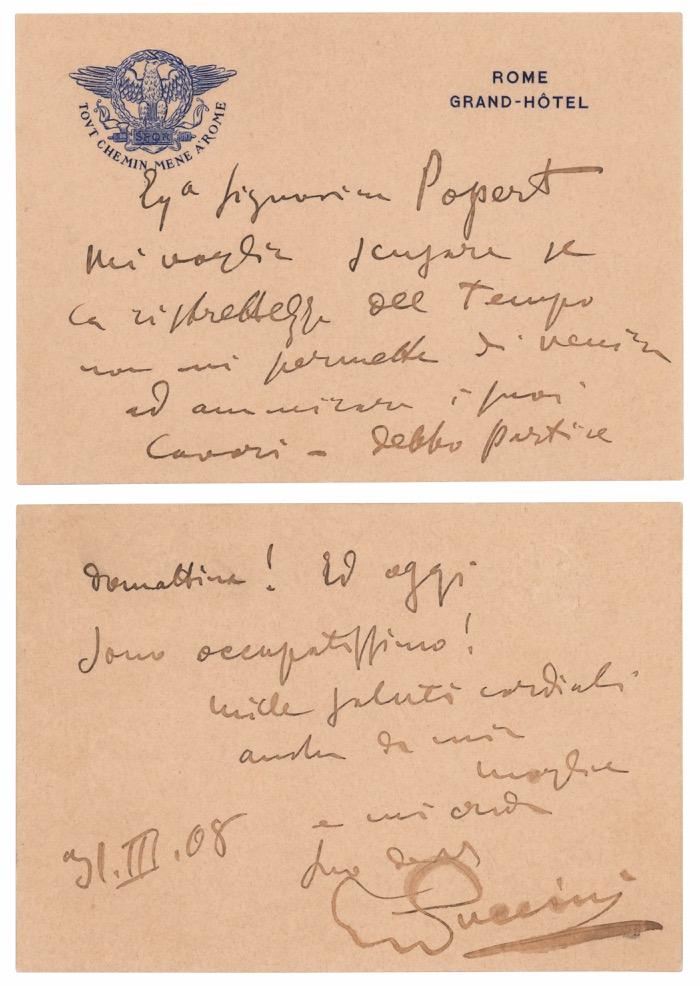 ROME
GRAND-HÔTEL
SPQR
TOVT CHEMIN MENE A ROME
Eg.a Signorina Popert
mi voglia scusare se
la ristrettezza del tempo
non mi permette di venire
ad ammirare i suoi
lavori - debbo partire
domattina! Ed oggi
sono occupatissimo!
mille saluti cordiali
anche da mia
moglie
e mi creda
suo dev
31.III.08
Puccini